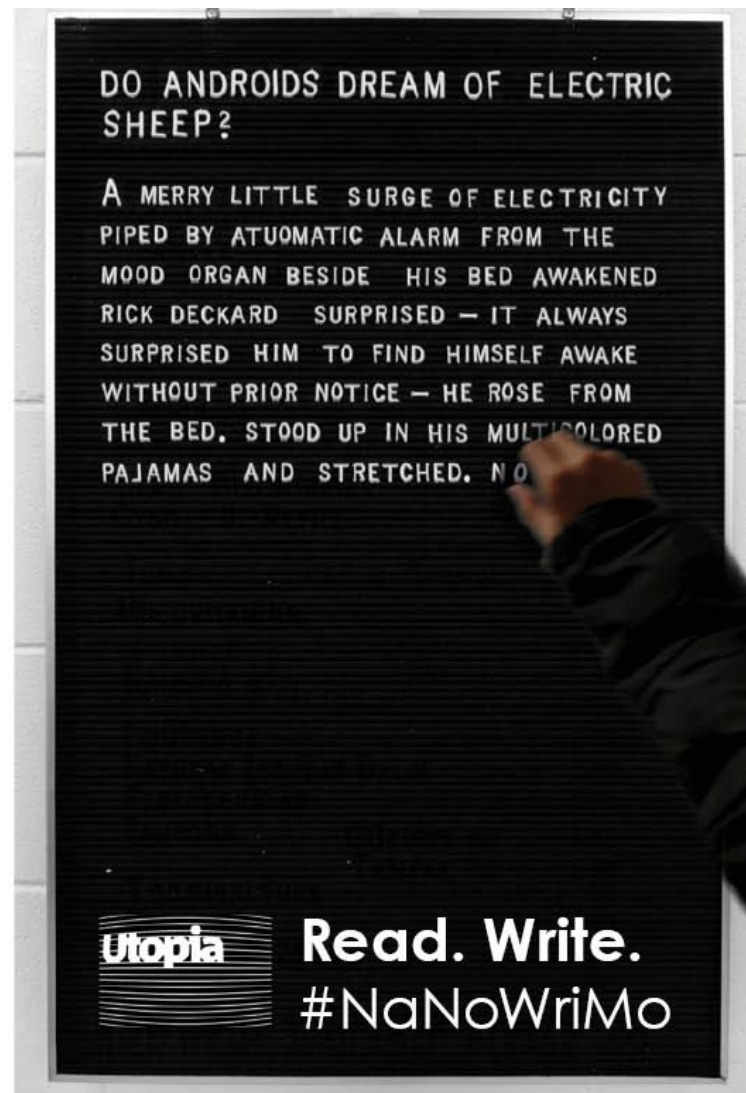 DO ANDROIDS DREAM OF ELECTRIC
SHEEP?
A MERRY LITTLE SURGE OF ELECTRICITY
PIPED BY ATUOMATIC ALARM FROM THE
MOOD ORGAN BESIDE HIS BED AWAKENED
RICK DECKARD SURPRISED – IT ALWAYS
SURPRISED HIM TO FIND HIMSELF AWAKE
WITHOUT PRIOR NOTICE – HE ROSE FROM
THE BED. STOOD UP IN HIS MULTICOLORED
PAJAMAS AND STRETCHED. NO
Utopia
Read. Write.
#NaNoWriMo